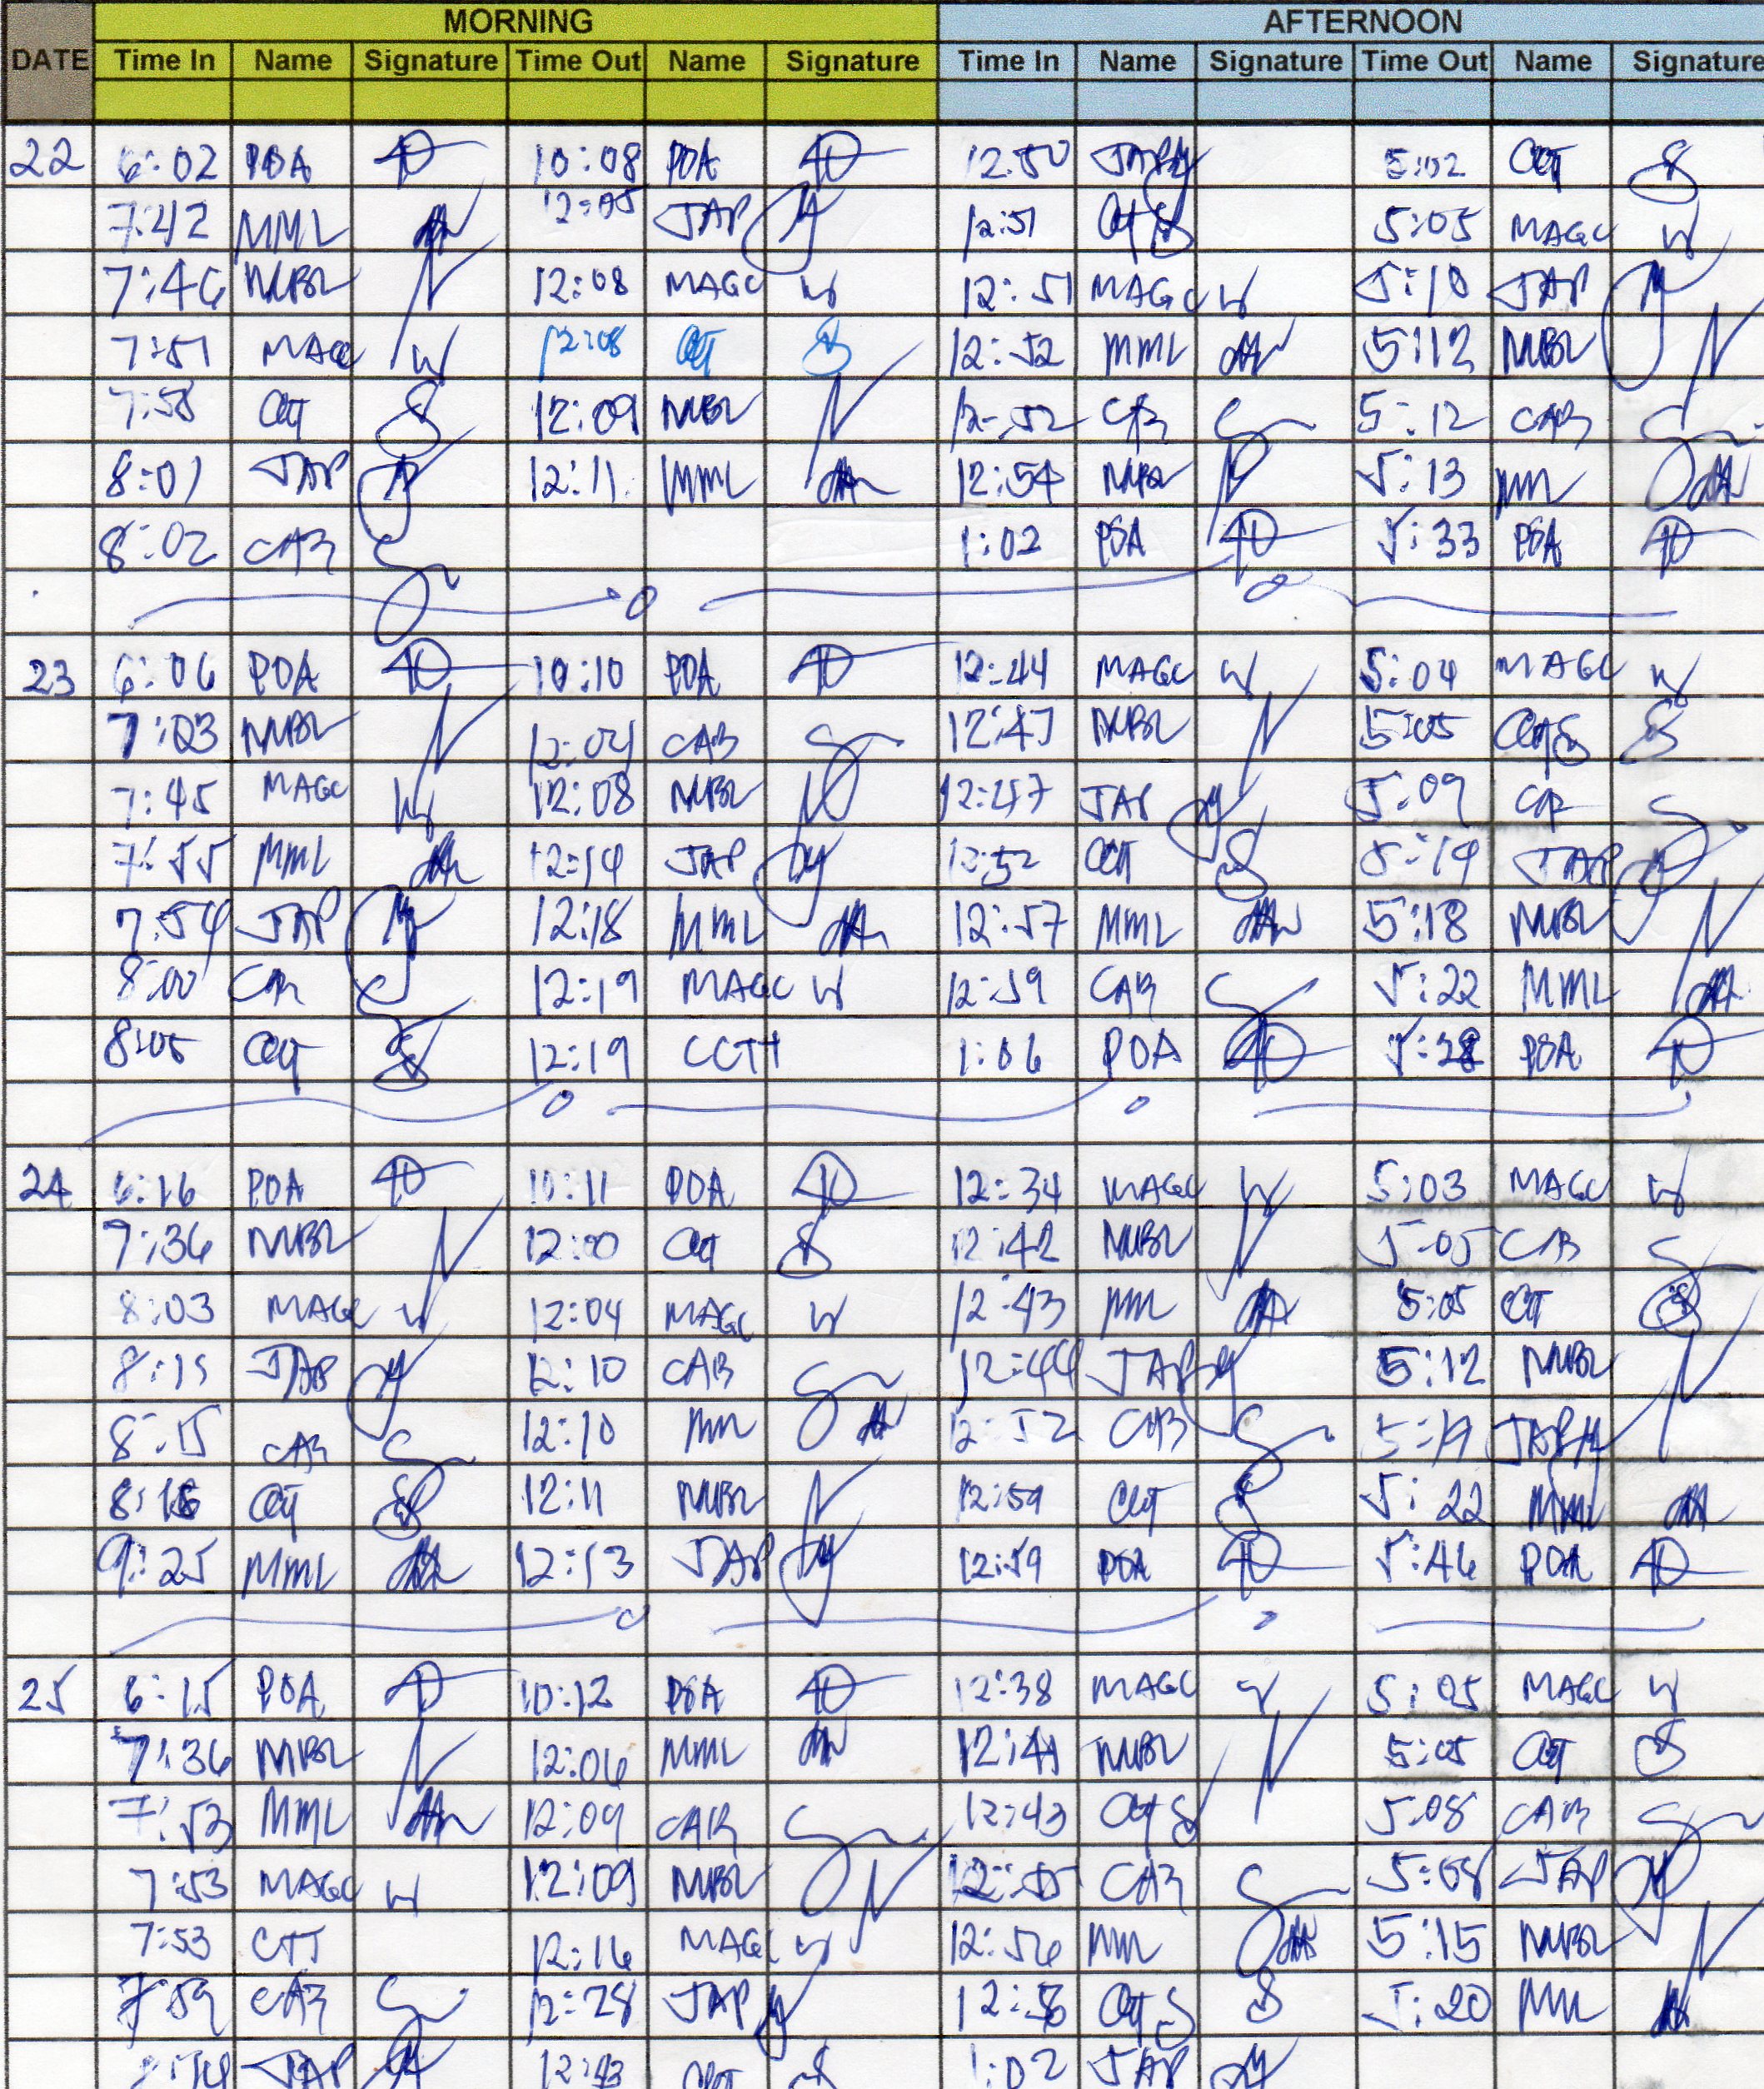 MORNING AFTERNOON
DATE Time In Name Signature Time Out Name Signature Time In Name Signature Time Out Name Signature
22 6:02 POA 10:08 POA 12:50 JAP 5:02 CCT
7:42 MML 12:05 JAP 12:51 CCT 5:05 MAGC
7:46 NUBL 12:08 MAGC 12:51 MAGC 5:10 JAP
7:51 MAGC 12:08 CCT 12:52 MML 5:12 NUBL
7:58 CCT 12:09 NUBL 12:52 CAB 5:12 CAB
8:01 JAP 12:11 MML 12:54 NUBL 5:13 MML
8:02 CAB 1:02 POA 5:33 POA
23 6:06 POA 10:10 POA 12:44 MAGC 5:04 MAGC
7:23 NUBL 12:04 CAB 12:47 NUBL 5:05 CCT
7:45 MAGC 12:08 NUBL 12:47 JAP 5:09 CAB
7:55 MML 12:14 JAP 12:52 CCT 5:14 JAP
7:54 JAP 12:18 MML 12:57 MML 5:18 NUBL
8:00 CAB 12:19 MAGC 12:59 CAB 5:22 MML
8:05 CCT 12:19 CCTT 1:06 POA 5:28 POA
24 6:16 POA 10:11 POA 12:34 MAGC 5:03 MAGC
7:36 NUBL 12:00 CCT 12:42 NUBL 5:05 CAB
8:03 MAGC 12:04 MAGC 12:43 MML 5:05 CCT
8:15 JAP 12:10 CAB 12:44 JAP 5:12 NUBL
8:15 CAB 12:10 MML 12:52 CAB 5:19 JAP
8:18 CCT 12:11 NUBL 12:59 CCT 5:22 MML
9:25 MML 12:13 JAP 12:59 POA 5:46 POA
25 6:15 POA 10:12 POA 12:38 MAGC 5:05 MAGC
7:36 NUBL 12:06 MML 12:41 NUBL 5:05 CCT
7:53 MML 12:09 CAB 12:43 CCT 5:08 CAB
7:53 MAGC 12:09 NUBL 12:55 CAB 5:08 JAP
7:53 CTT 12:16 MAGC 12:56 MML 5:15 NUBL
7:59 CAB 12:28 JAP 12:56 CCT 5:20 MML
JAP CCT 1:02 JAP